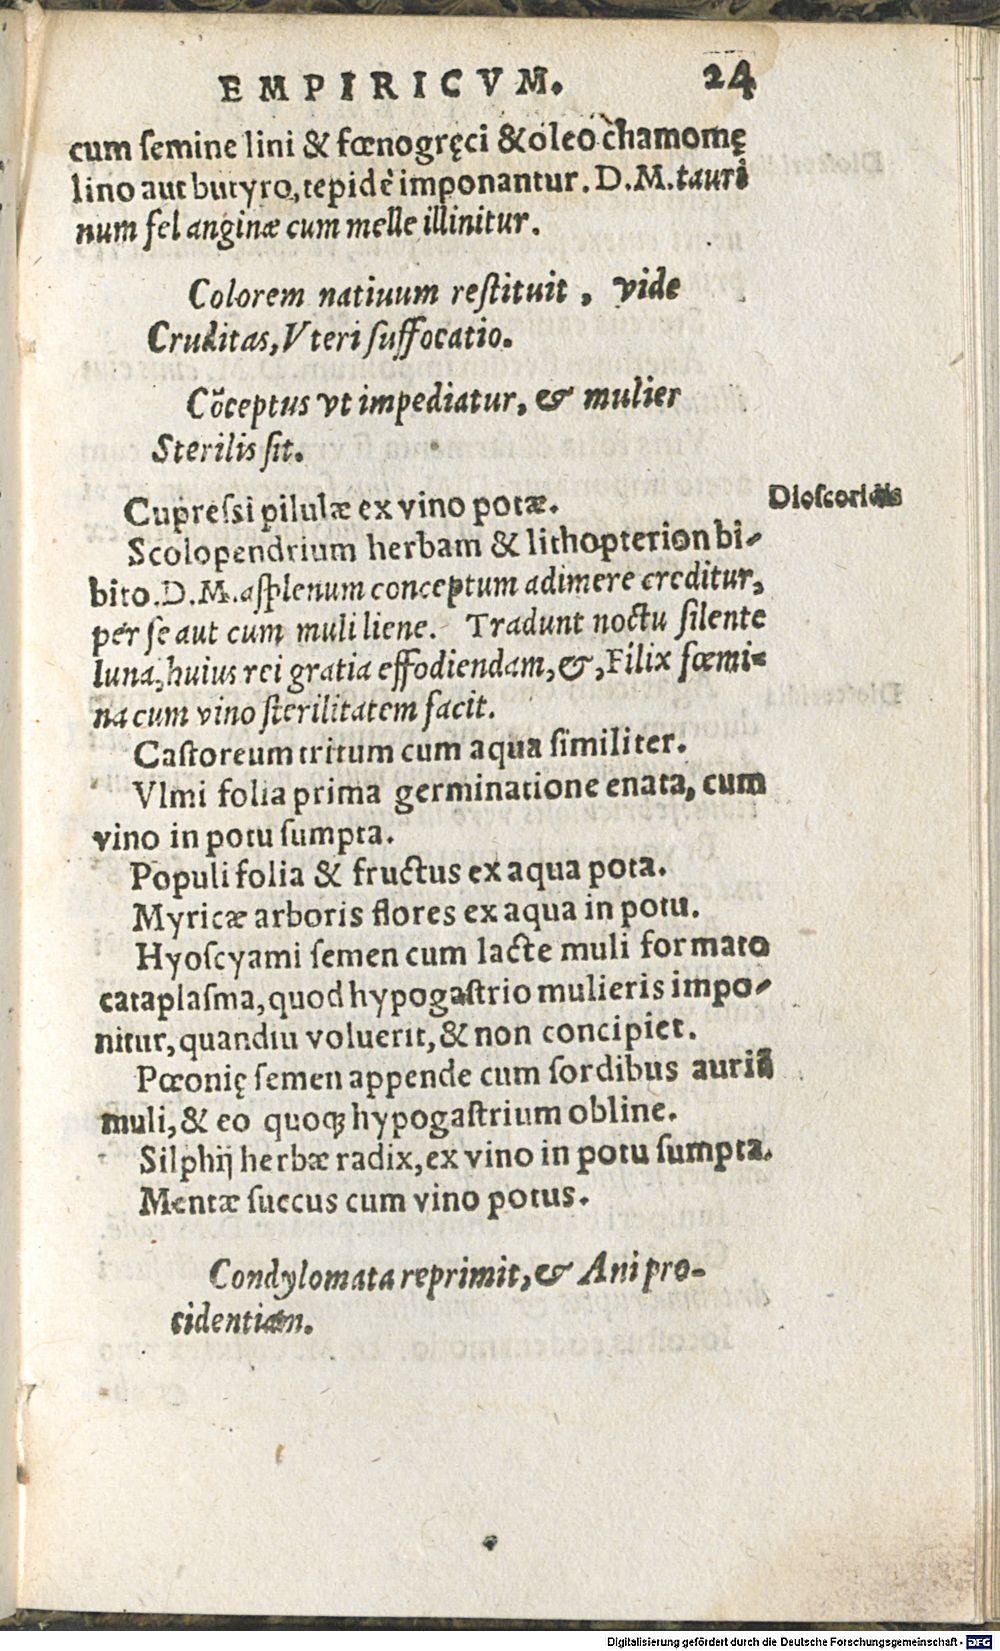 EMPIRICVM. 24
cum ſemine lini & fœnogręci & oleo chamomę
lino aut butyro, tepidè imponantur. D.M. tauri
num fel anginæ cum melle illinitur.
Colorem natiuum reſtituit, vide
Cruditas, Vteri ſuffocatio.
Cõceptus vt impediatur, & mulier
Sterilis ſit.
Cupreſsi pilulæ ex vino potæ. Dioſcoridis
Scolopendrium herbam & lithopterion bi-
bito. D.M. aſplenum conceptum adimere creditur,
per ſe aut cum muli liene. Tradunt noctu ſilente
luna, huius rei gratia effodiendam, &, Filix fœmi-
na cum vino ſterilitatem facit.
Caſtoreum tritum cum aqua ſimiliter.
Vlmi folia prima germinatione enata, cum
vino in potu ſumpta.
Populi folia & fructus ex aqua pota.
Myricæ arboris flores ex aqua in potu.
Hyoſcyami ſemen cum lacte muli formato
cataplaſma, quod hypogaſtrio mulieris impo-
nitur, quandiu voluerit, & non concipiet.
Pœonię ſemen appende cum ſordibus auriũ
muli, & eo quoq; hypogaſtrium obline.
Silphij herbæ radix, ex vino in potu ſumpta.
Mentæ ſuccus cum vino potus.
Condylomata reprimit, & Ani pro-
cidentiam.
Digitalisierung gefördert durch die Deutsche Forschungsgemeinschaft - DFG